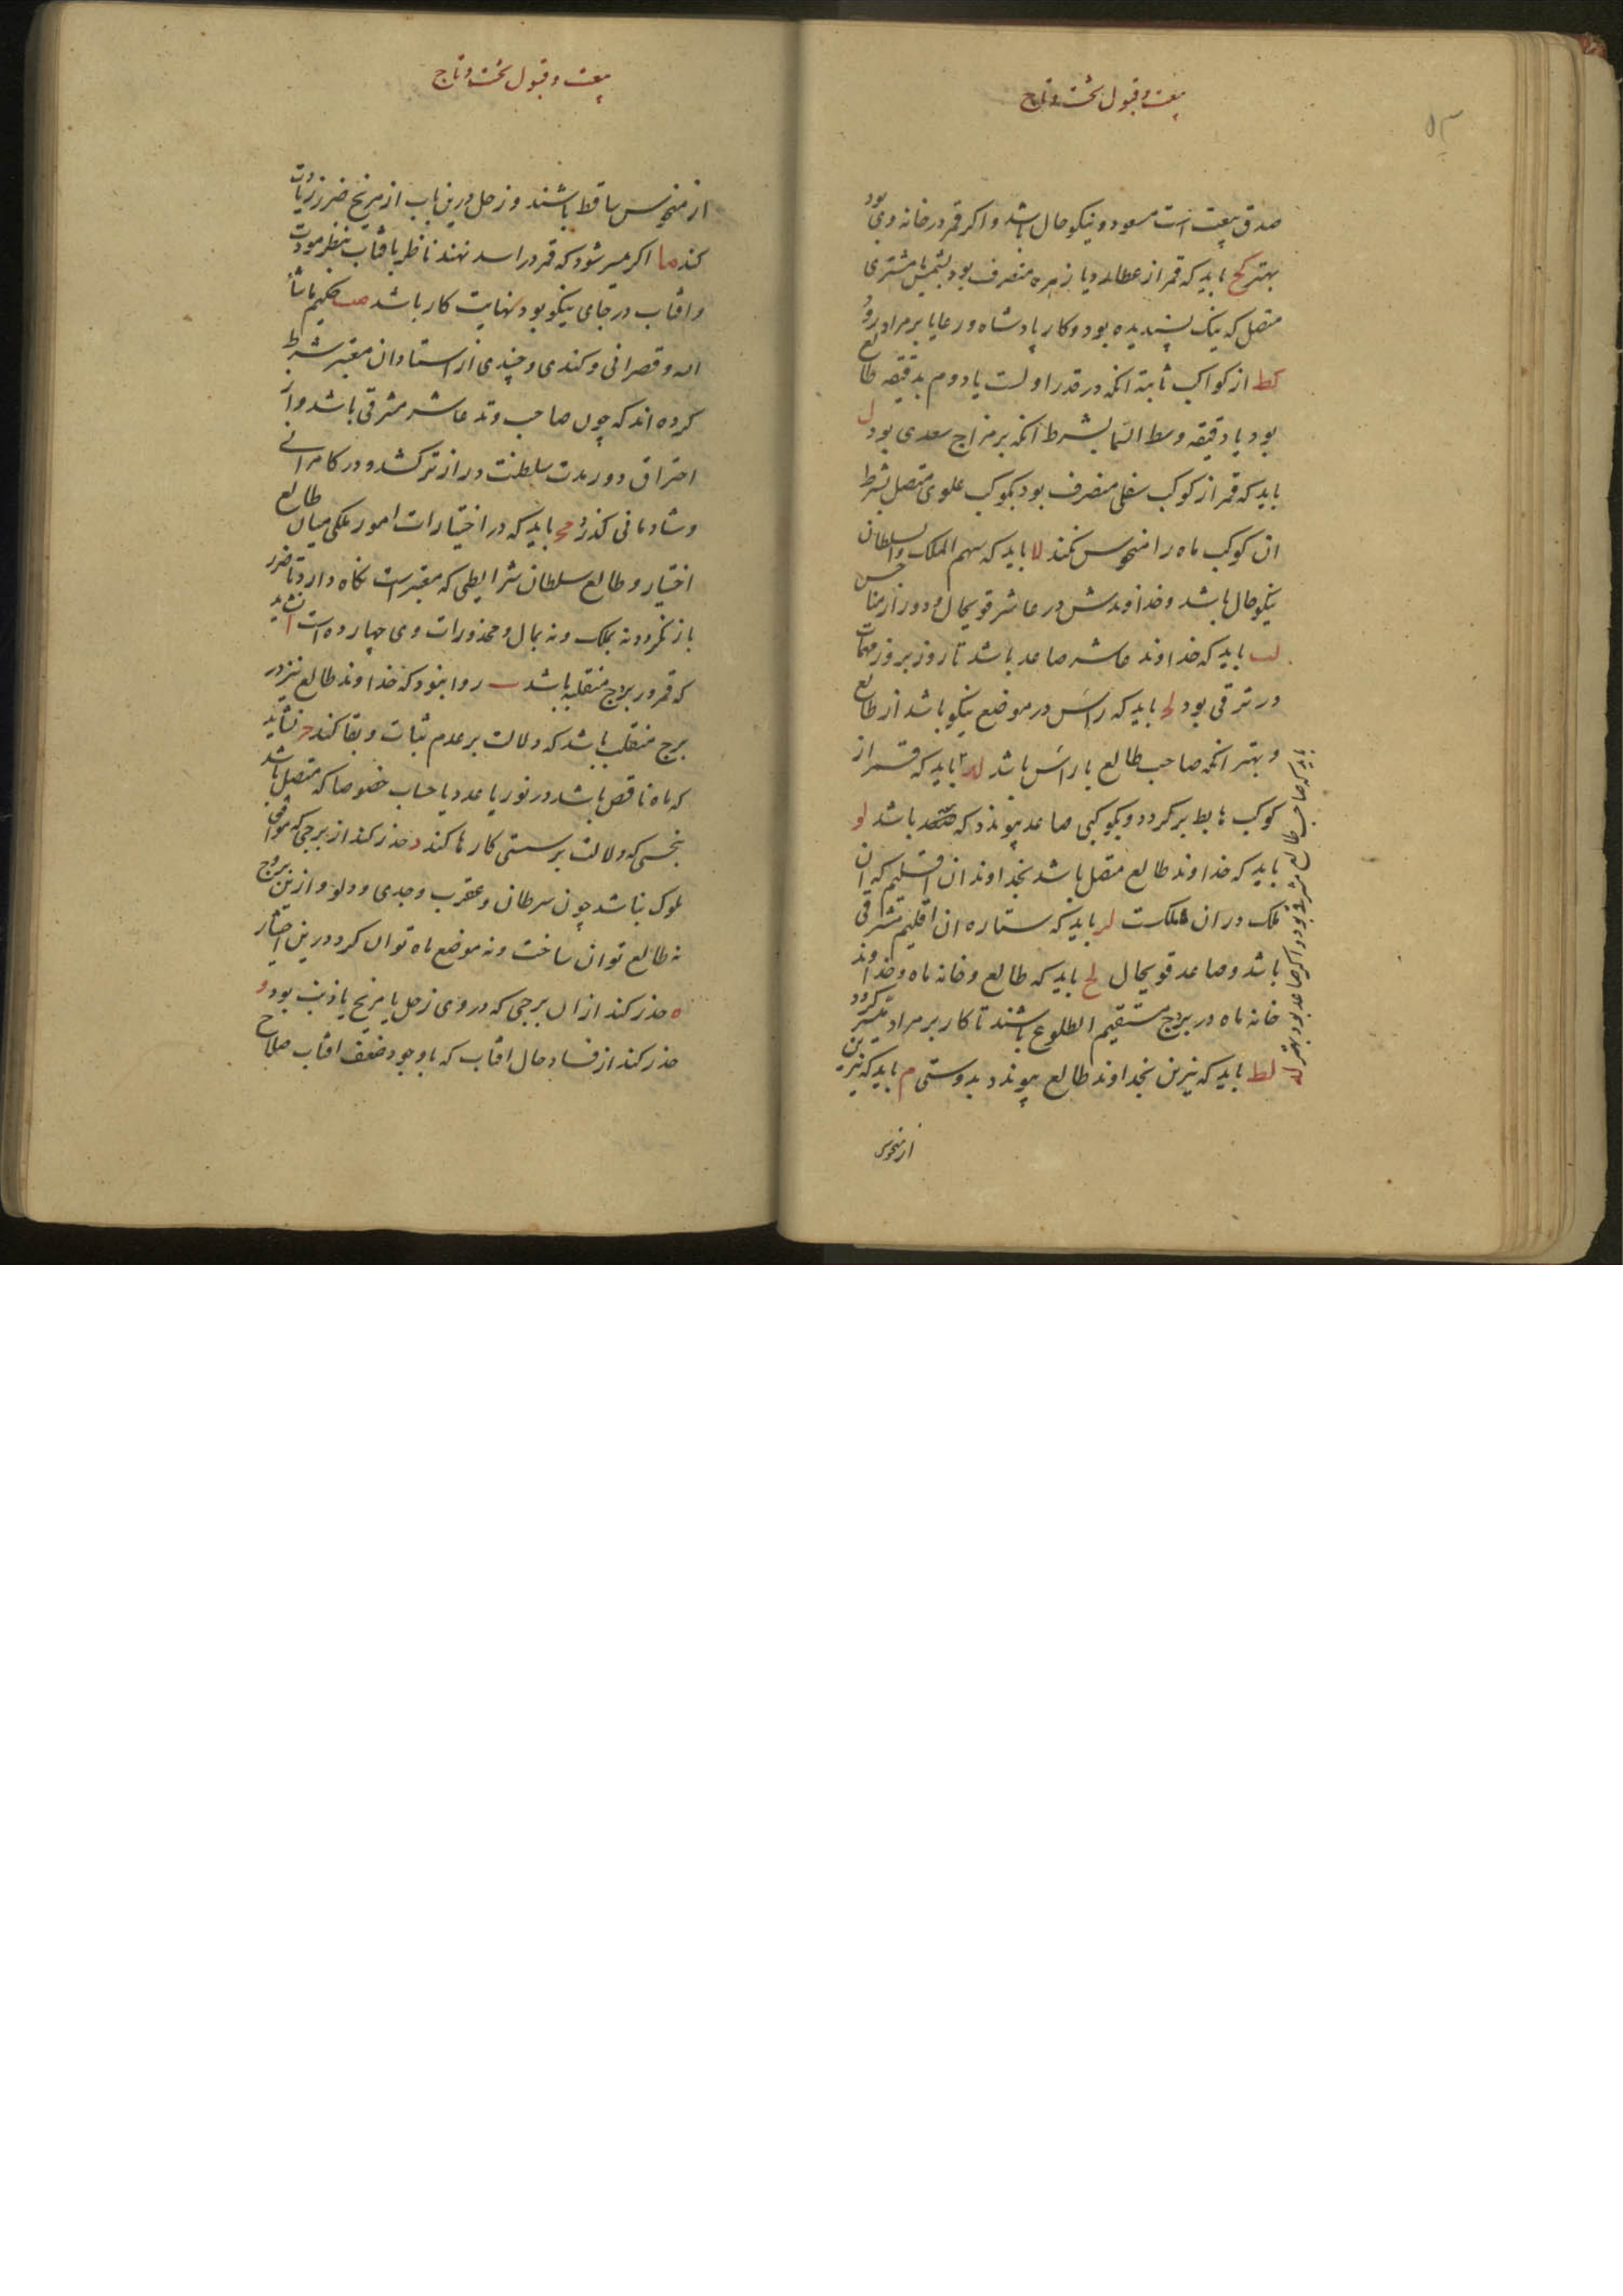 بیعت و قبول تخت و تاج
صدق بیعت است مسعود و نیکو حال باشد و اکر قمر در خانه وی بود
بهتر کح باید که قمر از عطارد یا زهره منصرف بود بشمس یا مشتری
متصل که نیک پسندیده بود و کار پادشاه و رعایا بر مراد رود
کط از کواکب ثابته انکه در قدر اولست یا دوم بدقیقه طالع
بود یا دقیقه وسط السما بشرط انکه بر مزاج سعدی بود ل
باید که قمر از کوکب سفلی منصرف بود بکوکب علوی متصل بشرط
ان کوکب ماه را منحوس نکند لا باید که سهم الملک والسلطان
نیکو حال باشد و خداوندش در عاشر قویحال و دور از مناحس
لب باید که خداوند عاشر صاعد باشد تا روز بروز مهمات
در ترقی بود لح باید که راس در موضع نیکو باشد از طالع
و بهتر انکه صاحب طالع با راس باشد لد باید که قمر از
کوکب هابط برکردد و بکوکبی صاعد پیوندد که باشد لو
باید که خداوند طالع متصل باشد بخداوند ان اقلیم که ان
ملک در ان مملکت لر باید که ستاره ان اقلیم مشرقی
باشد و صاعد قویحال لح باید که طالع و خانه ماه و خداوند
خانه ماه در بروج مستقیم الطلوع باشند تا کار بر مراد میسر کردد
لط باید که نیرین بخداوند طالع پیوندد بدوستی م باید که نیرین
باید که صاحب طالع مشرقی بود و اکر صاعد بود بهتر له
از منحوس
۵۳
بیعت و قبول تخت و تاج
از منحوس ساقط باشند و زحل درین باب از مریخ ضرر زیادت
کند ما اکر میسر شود که قمر در اسد نهند ناظر بافتاب بنظر مودت
و افتاب در جای نیکو بود نهایت کار باشد مب حکیم ماشا
الله و قصرانی و کندی و چندی از استادان معتبر شرط
کرده اند که چون صاحب وتد عاشر مشرقی باشد و از
احتراق دور مدت سلطنت دراز تر کشد و در کامرانی
و شادمانی کذرد مح باید که در اختیارات امور ملکی میان طالع
اختیار و طالع سلطان شرایطی که معتبر است نکاه دارد تا ضرر
باز نکردد نه بملک و نه بمال و محذورات وی چهارده است ا نشاید
که قمر در بروج منقلبه باشد ب روا نبود که خداوند طالع نیز در
برج منقلب باشد که دلالت بر عدم ثبات و بقا کند ح نشاید
که ماه ناقص باشد در نور یا عدد یا حساب خصوصا که متصل باشد
بنحسی که دلالت بر سستی کارها کند د حذر کند از برجی که موافق
ملوک نباشد چون سرطان و عقرب و جدی و دلو و ازین بروج
نه طالع توان ساخت و نه موضع ماه توان کرد درین اختیار
ه حذر کند از ان برجی که در وی زحل یا مریخ یا ذنب بود و
حذر کند از فساد حال افتاب که با وجود ضعف افتاب صلاح